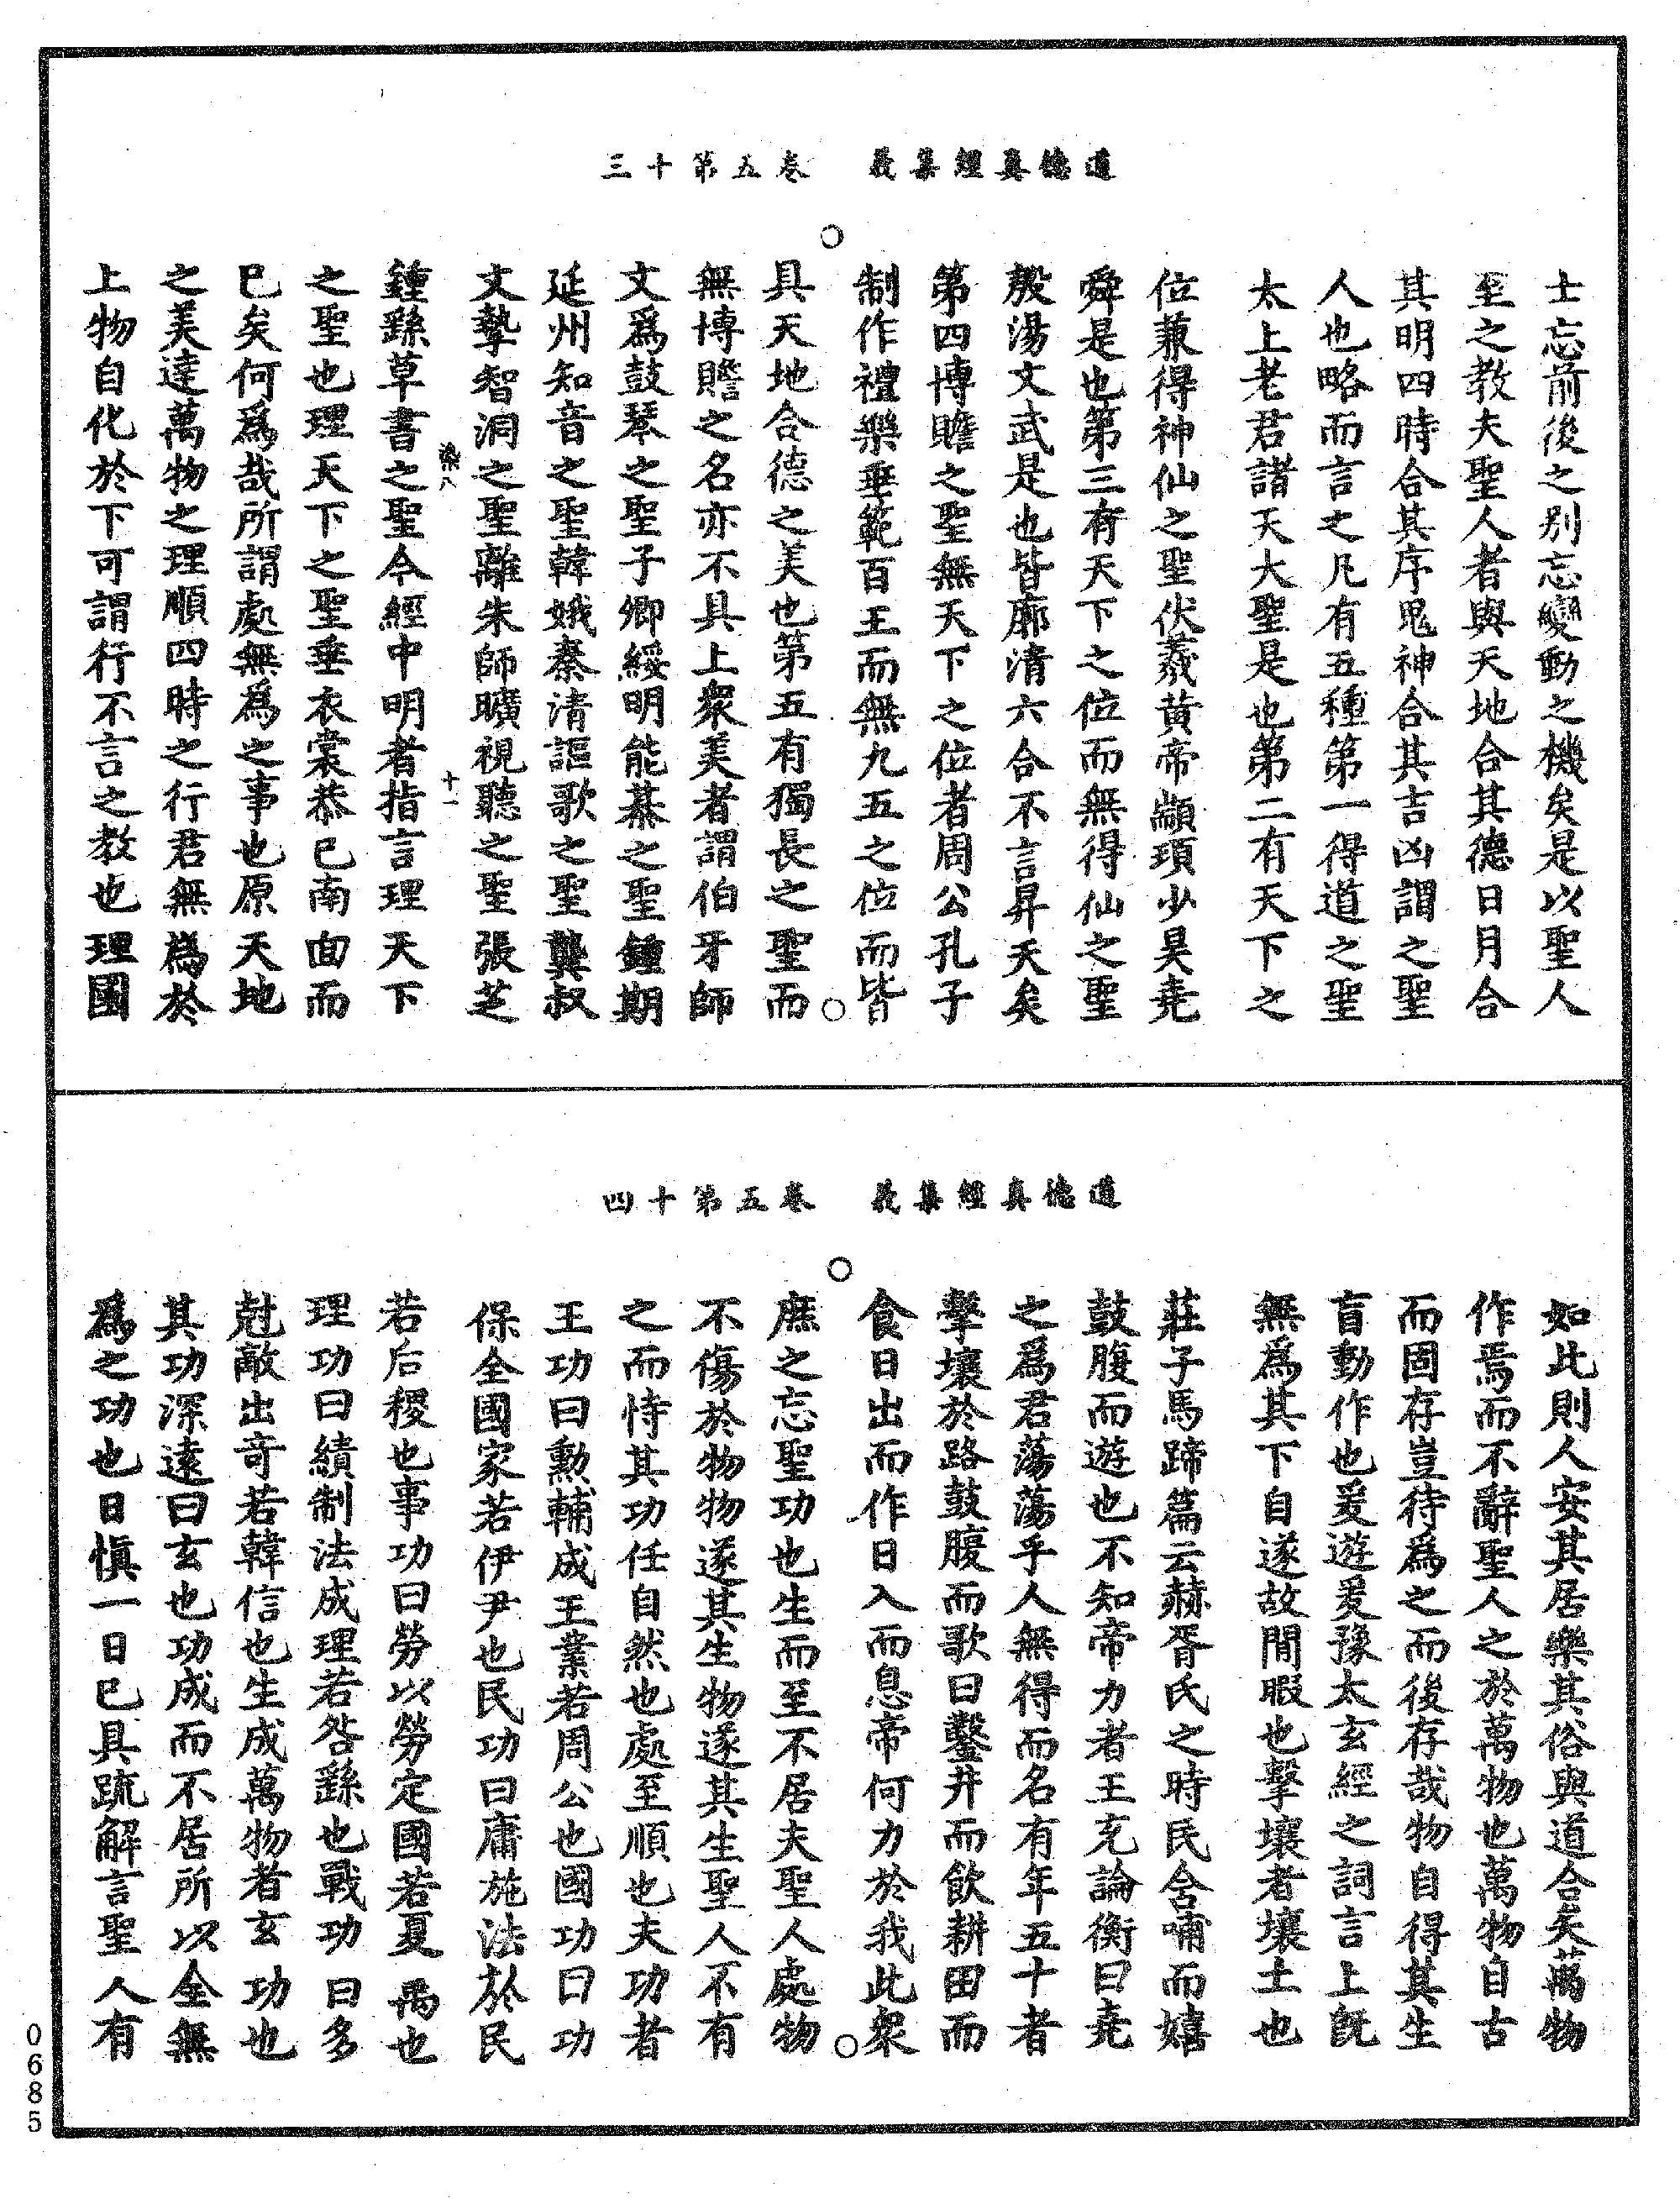 道德真經集義　卷五第十三
士忘前後之别忘變動之機矣是以聖人
至之教夫聖人者與天地合其德日月合
其明四時合其序鬼神合其吉凶謂之聖
人也略而言之凡有五種第一得道之聖
太上老君諸天大聖是也第二有天下之
位兼得神仙之聖伏羲黄帝顓頊少昊堯
舜是也第三有天下之位而無得仙之聖
殷湯文武是也皆廓清六合不言昇天矣
第四博贍之聖無天下之位者周公孔子
制作禮樂垂範百王而無九五之位而皆
具天地合德之美也第五有獨長之聖而
無博贍之名亦不具上衆美者謂伯牙師
文爲鼓琴之聖子卿綏明能棊之聖鍾期
延州知音之聖韓娥秦清謳歌之聖龔叔
文摯智洞之聖離朱師曠視聽之聖張芝
染八　十一
鍾繇草書之聖今經中明者指言理天下
之聖也理天下之聖垂衣裳恭已南面而
已矣何爲哉所謂處無爲之事也原天地
之美達萬物之理順四時之行君無爲於
上物自化於下可謂行不言之教也理國
道德真經集義　卷五第十四
如此則人安其居樂其俗與道合矣萬物
作焉而不辭聖人之於萬物也萬物自古
而固存豈待爲之而後存哉物自得其生
盲動作也爰遊爰豫太玄經之詞言上旣
無爲其下自遂故閒暇也擊壤者壤土也
莊子馬蹄篇云赫胥氏之時民含哺而嬉
鼓腹而遊也不知帝力者王充論衡曰堯
之爲君蕩蕩乎人無得而名有年五十者
擊壤於路鼓腹而歌曰鑿井而飲耕田而
食日出而作日入而息帝何力於我此衆
庶之忘聖功也生而至不居夫聖人處物
不傷於物物遂其生物遂其生聖人不有
之而恃其功任自然也處至順也夫功者
王功曰勲輔成王業若周公也國功曰功
保全國家若伊尹也民功曰庸施法於民
若后稷也事功曰勞以勞定國若夏禹也
理功曰績制法成理若咎繇也戰功曰多
尅敵出奇若韓信也生成萬物者玄功也
其功深遠曰玄也功成而不居所以全無
爲之功也日愼一日已具䟽解言聖人有
0685